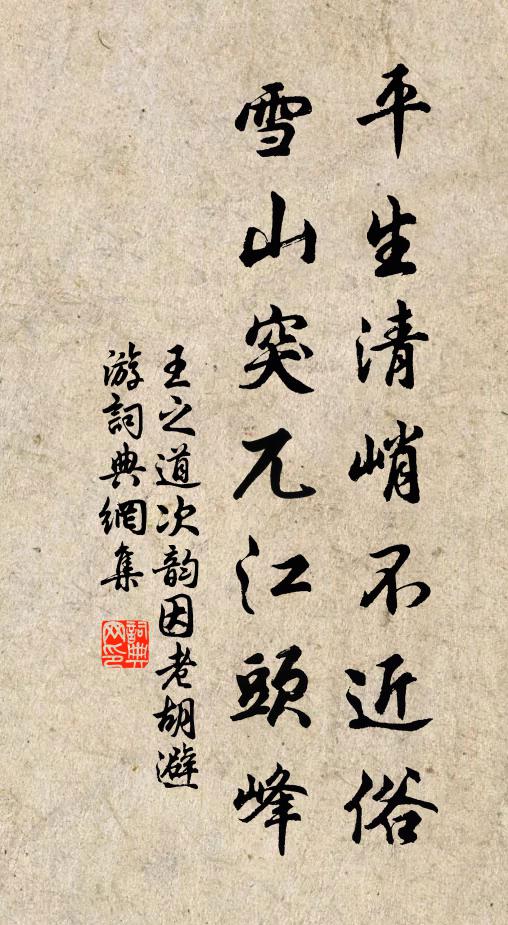 平生清峭不近俗
雪山突兀江頭峰
王之道次韵因老胡避
游詞典網集
詞典
网印